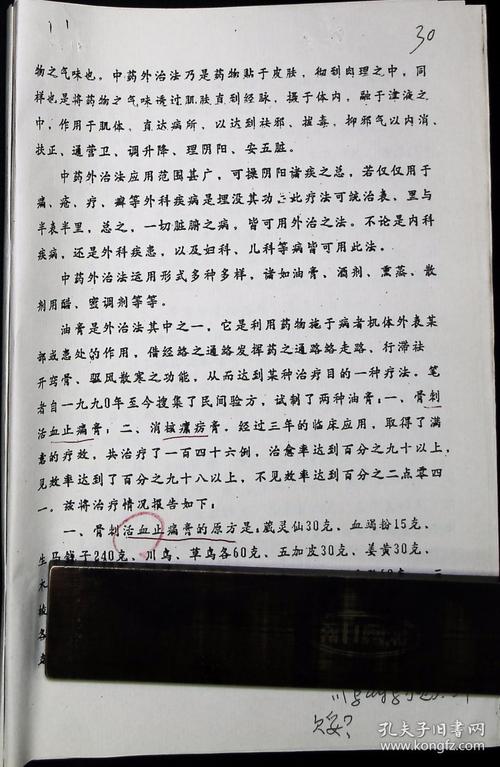 30
物之气味也。中药外治法乃是药物贴于皮肤，彻到肉理之中，同
样也是将药物之气味透过肌肤直到经脉，摄于体内，融于津液之
中，作用于肌体，直达病所，以达到祛邪、拔毒、抑邪气以内消、
扶正、通营卫、调升降、理阴阳、安五脏。
中药外治法应用范围甚广，可操阴阳诸疾之总，若仅仅用于
痈、疮、疔、癣等外科疾病是埋没其功，此疗法可统治表、里与
半表半里，总之，一切脏腑之病，皆可用外治之法。不论是内科
疾病，还是外科疾患，以及妇科、儿科等病皆可用此法。
中药外治法运用形式多种多样，诸如油膏、酒剂、熏蒸、散
剂用醋、密调剂等等。
油膏是外治法其中之一，它是利用药物施于病者机体外表某
部或患处的作用，借经络之通络发挥药之通路络走路、行滞祛
开窍骨、驱风散寒之功能，从而达到某种治疗目的一种疗法。笔
者自一九九0年至今搜集了民间验方，试制了两种油膏：一、骨刺
活血止痛膏；二、消核瘰疬膏。经过三年的临床应用，取得了满
意的疗效，共治疗了一百四十六例，治愈率达到百分之九十以上，
见效率达到了百分之九十八以上，不见效率达到百分之二点零四
一。兹将治疗情况报告如下：
一、骨刺活血止痛膏的原方是：威灵仙30克、血竭粉15克、
生马钱子240克、川乌、草乌各60克、五加皮30克、姜黄30克、
欠妥？
孔夫子旧书网
www.kongfz.com